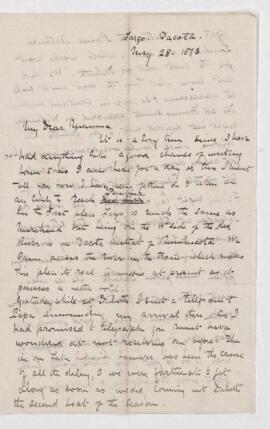 Fargo. Dacota.
May 28. 1873
My Dear Mamma
It is a long time since I have
had anything like a good chance of writing
home & as I am here for a day or two I must
tell you how I have been getting on & when I
am likely to reach
In the first place Fargo is much the same as
Moorhead but being on the W side of the Red
River is in Dacota instead of Minnesota. We
came across the river in the train which makes
this place its real terminus at present as it
possesses a better hotel.
Yesterday while at Duluth I sent a telegram to
Papa announcing my arrival there. As I
had promised to telegraph you must have
wondered at not receiving one before. The
ice on Lake however has been the cause
of all the delay, & we were fortunate to get
along as soon as we did, coming into Duluth
the second boat of the season.